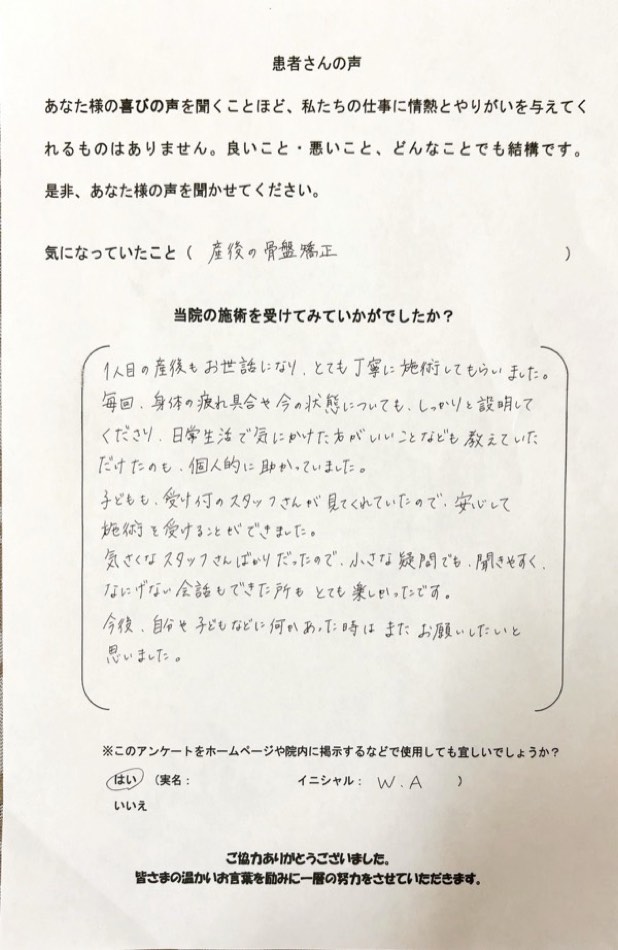 患者さんの声
あなた様の喜びの声を聞くことほど、私たちの仕事に情熱とやりがいを与えてく
れるものはありません。良いこと・悪いこと、どんなことでも結構です。
是非、あなた様の声を聞かせてください。
気になっていたこと（ 産後の骨盤矯正 ）
当院の施術を受けてみていかがでしたか？
1人目の産後もお世話になり、とても丁寧に施術してもらいました。
毎回、身体の疲れ具合や今の状態についても、しっかりと説明して
くださり、日常生活で気にかけた方がいいことなども教えていた
だけたのも、個人的に助かっていました。
子どもも、受け付のスタッフさんが見てくれていたので、安心して
施術を受けることができました。
気さくなスタッフさんばかりだったので、小さな疑問でも、聞きやすく、
なにげない会話もできた所もとても楽しかったです。
今後、自分や子どもなどに何かあった時はまたお願いしたいと
思いました。
※このアンケートをホームページや院内に掲示するなどで使用しても宜しいでしょうか？
はい （実名： イニシャル： W.A ）
いいえ
ご協力ありがとうございました。
皆さまの温かいお言葉を励みに一層の努力をさせていただきます。